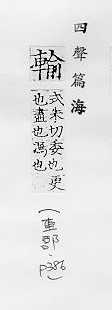 四聲篇海
輸
式朱切委也更
也盡也馮也
(車部、
p386)